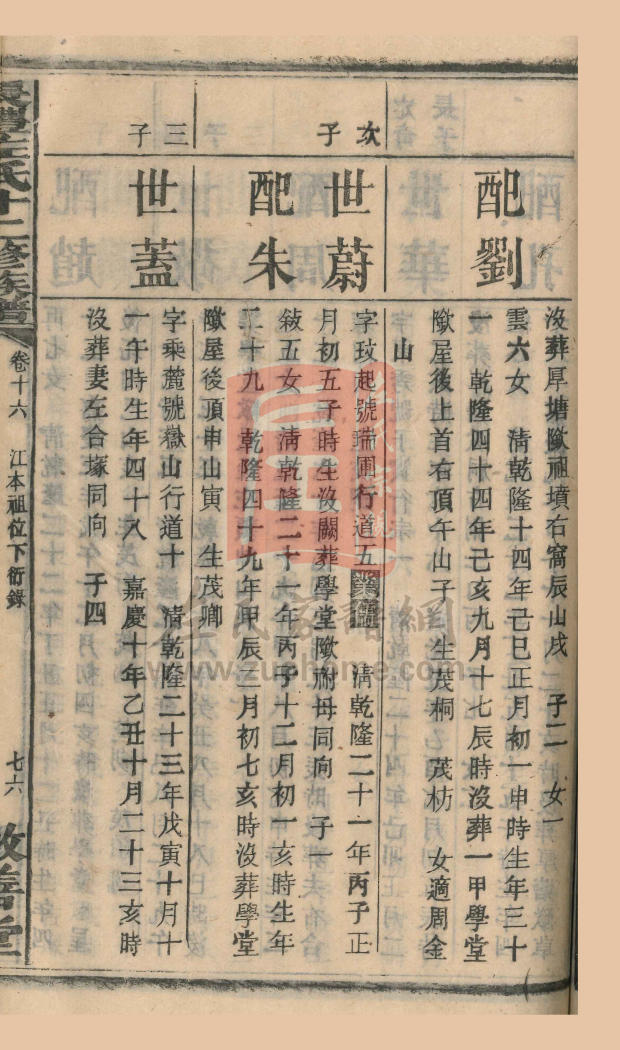 沒葬厚塘歟祖墳右窩辰山戌　子二　女一
配劉
雲六女　清乾隆十四年己巳正月初一申時生年三十
一　乾隆四十四年己亥九月十七辰時沒葬一甲學堂
歟屋後上首右頂午山子　生茂桐　茂枋　女適周金
山
次子
世蔚
字玟起號瑞圃行道五業儒　清乾隆二十一年丙子正
月初五子時生沒闕葬學堂歟祔母同向　子一
配朱
敍五女　清乾隆二十一年丙子十二月初一亥時生年
二十九　乾隆四十九年甲辰三月初七亥時沒葬學堂
歟屋後頂申山寅　生茂卿
三子
世蓋
字乘麓號嶽山行道十　清乾隆二十三年戊寅十月十
一午時生年四十八　嘉慶十年乙丑十月二十三亥時
沒葬妻左合塚同向　子四
氏十二修族譜
卷十六　江本祖位下衍錄
七六
善堂
www.zuphome.com